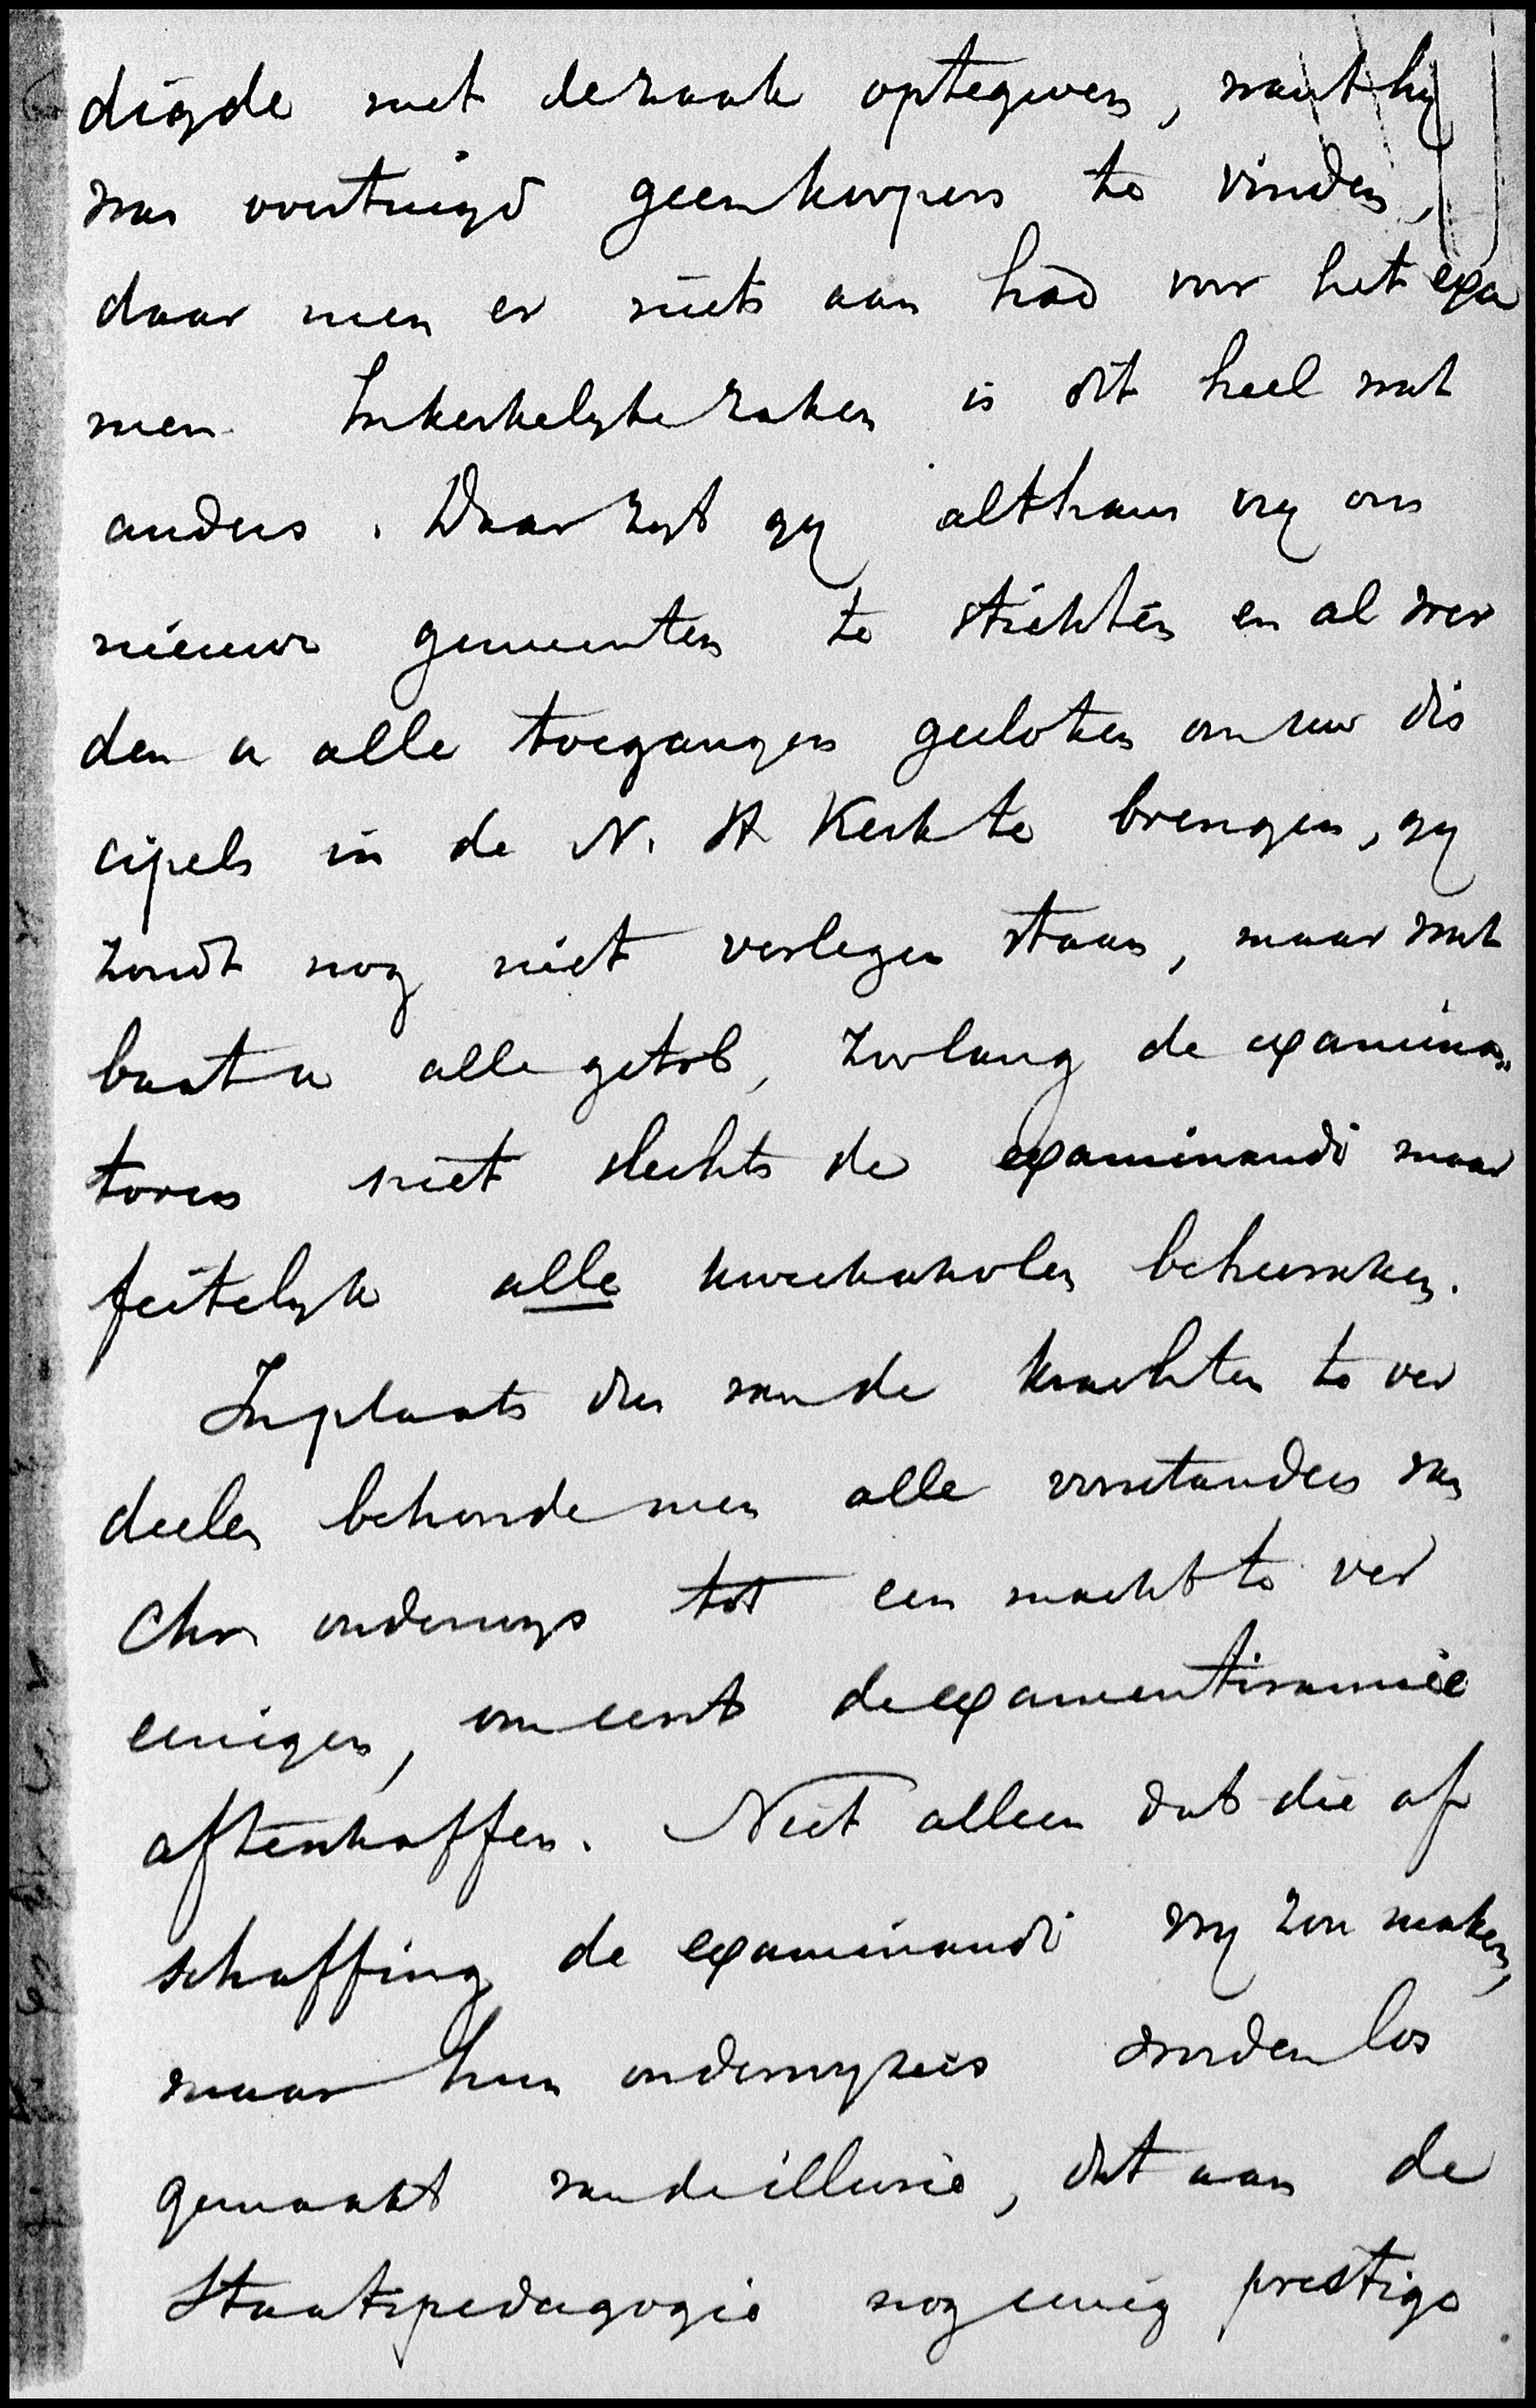 digde met de zaak optegeven, want hij
was overtuigd geen koopers te vinden,
daar men er niets aan had voor het exa
men. In kerkelijke zaken is dit heel wat
anders. Daar zijt gij althans vrij om
nieuwe gemeenten te stichten en al wer
den u alle toegangen gesloten om uw dis
cipels in de N. H. Kerk te brengen, gij
zoudt nog niet verlegen staan, maar wat
baat u alle getob, zoolang de examina-
toren niet slechts de examinandi maar
feitelijk alle kweekscholen beheerschen.
Inplaats dus van de krachten te ver
deelen behoorde men alle voorstanders van
Chr. onderwijs tot een macht te ver
eenigen, om eerst de examentirannie
afteschaffen. Niet alleen dat die af
schaffing de examinandi vrij zou maken,
maar hun onderwijzers worden los
gemaakt van de illusie, dat aan de
Staatspedagogie nog eenig prestige